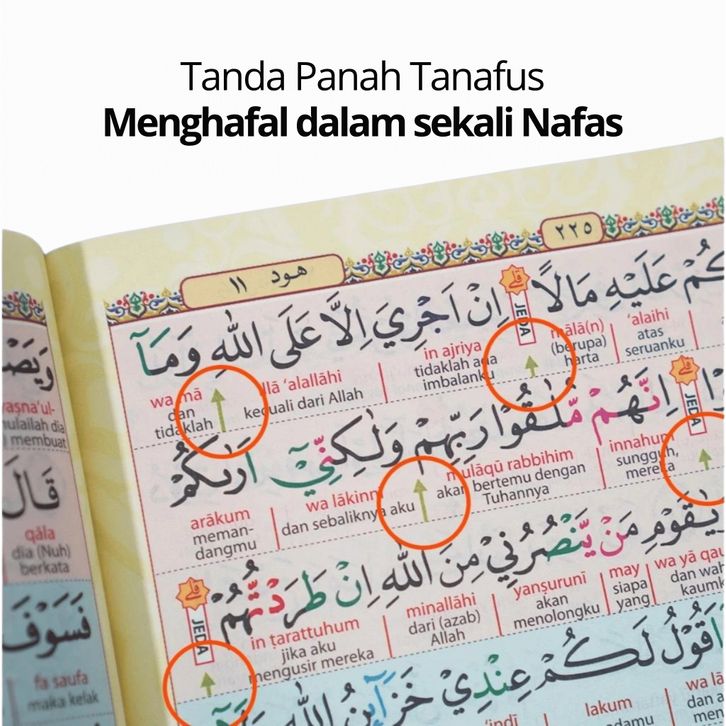 Tanda Panah Tanafus
Menghafal dalam sekali Nafas
٢٢٥
هود ١١
كُمْ عَلَيْهِ مَالًا ۗ اِنْ اَجْرِيَ اِلَّا عَلَى اللّٰهِ وَمَآ
JEDA
'alaihi atas seruanku
mālā(n) (berupa) harta
in ajriya tidaklah ada imbalanku
illā 'alallāhi kecuali dari Allah
wa mā dan tidaklah
اِنَّهُمْ مُّلٰقُوْا رَبِّهِمْ وَلٰكِنِّيْٓ اَرٰىكُمْ
JEDA
innahum sungguh, mereka
mulāqū rabbihim akan bertemu dengan Tuhannya
wa lākinnī dan sebaliknya aku
arākum memandangmu
يٰقَوْمِ مَنْ يَّنْصُرُنِيْ مِنَ اللّٰهِ اِنْ طَرَدْتُّهُمْ ۗ
JEDA
may siapa yang
yanṣurunī akan menolongku
minallāhi dari (azab) Allah
in ṭarattuhum jika aku mengusir mereka
اَقُوْلُ لَكُمْ عِنْدِيْ خَزَاۤىِٕنُ اللّٰهِ
lakum
yaṣna'ul-
membuat
قَالَ
qāla dia (Nuh) berkata
فَسَوْفَ
fa saufa maka kelak